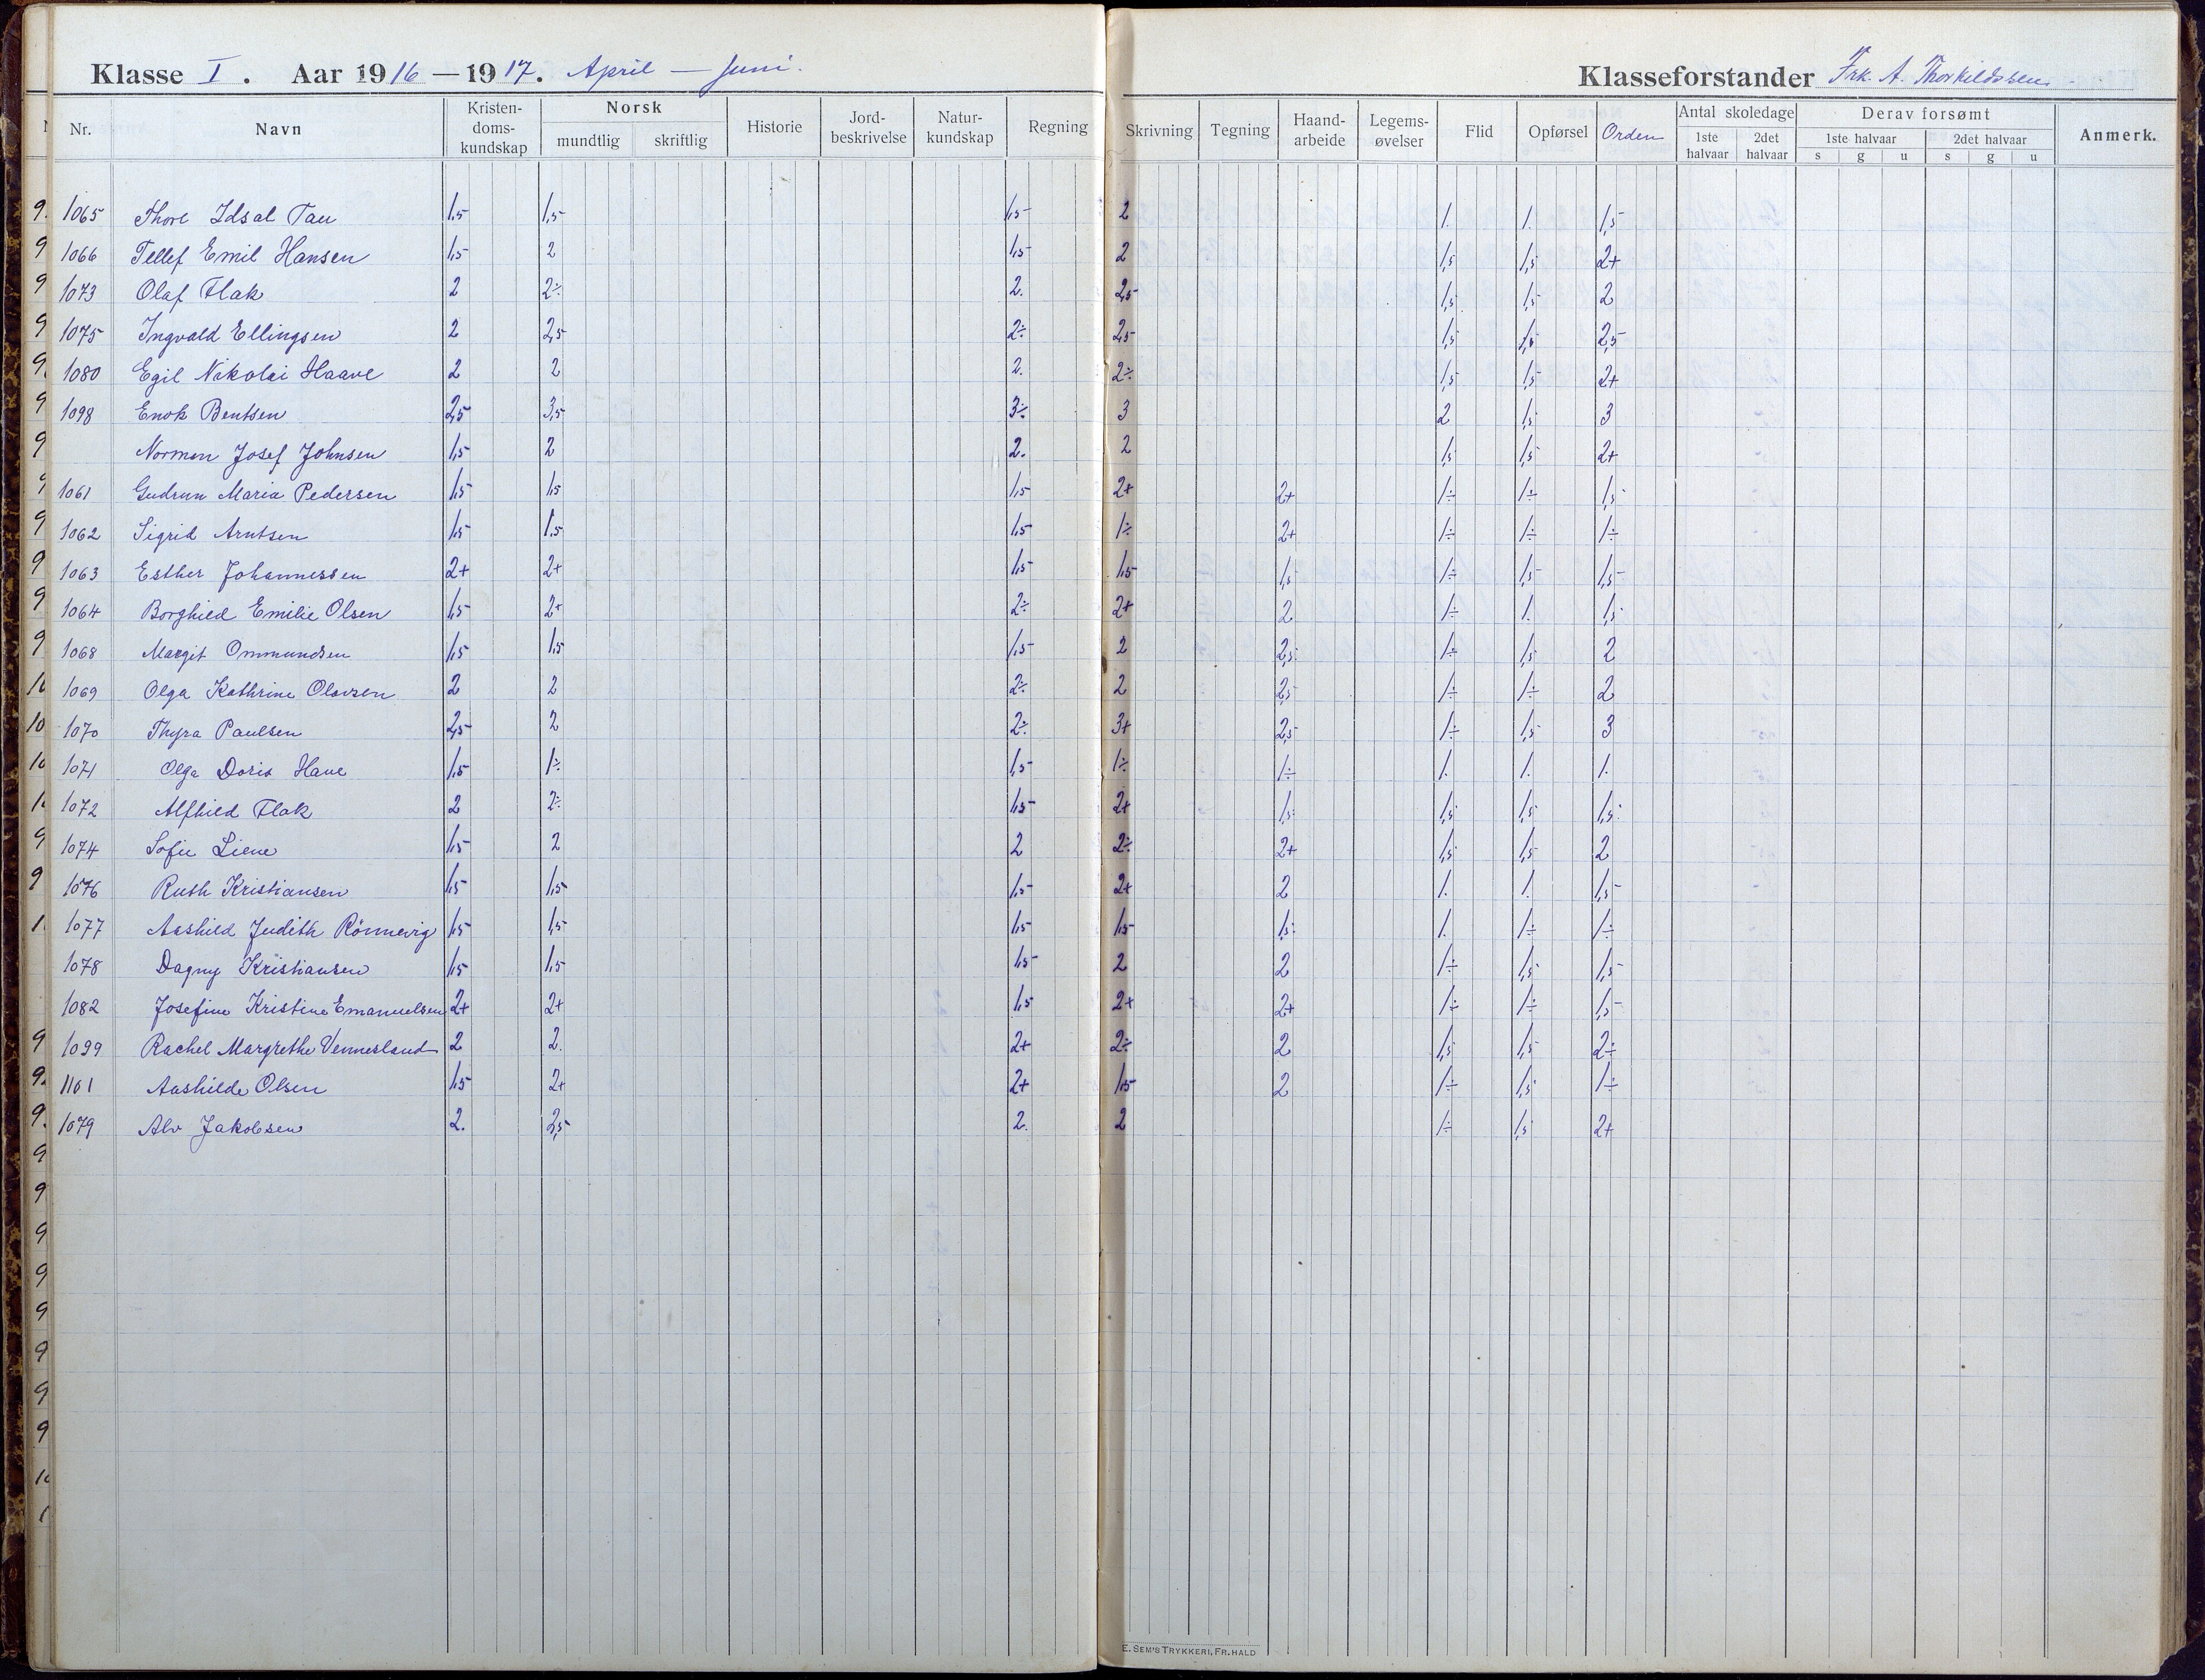 Klasse I. Aar 1916—1917. April — Juni. Klasseforstander Frk. A. Thorkildssen
Nr. Navn Kristen-doms-kundskap Norsk mundtlig skriftlig Historie Jord-beskrivelse Natur-kundskap Regning Skrivning Tegning Haand-arbeide Legems-øvelser Flid Opførsel Orden Antal skoledage 1ste halvaar 2det halvaar Derav forsømt 1ste halvaar s g u 2det halvaar s g u Anmerk.
1065 Thore Idsal Tau 1,5 1,5 1,5 2 1. 1. 1,5
1066 Tellef Emil Hansen 1,5 2 1,5 2 1,5 1,5 2+
1073 Olaf Flak 2 2÷ 2. 2,5 1,5 1,5 2
1075 Ingvald Ellingsen 2 2,5 2÷ 2,5 1,5 1,5 2,5
1080 Egil Nikolai Haave 2 2 2. 2÷ 1,5 1,5 2+
1098 Enok Bentsen 2,5 3,5 3÷ 3 2 1,5 3
Norman Josef Johnsen 1,5 2 2. 2 1,5 1,5 2+
1061 Gudrun Maria Pedersen 1,5 1,5 1,5 2+ 2+ 1÷ 1÷ 1,5
1062 Sigrid Arntsen 1,5 1.5 1,5 1÷ 2+ 1÷ 1÷ 1÷
1063 Esther Johannessen 2+ 2+ 1,5 1,5 1,5 1÷ 1,5 1,5
1064 Borghild Emilie Olsen 1,5 2+ 2÷ 2+ 2 1÷ 1. 1,5
1068 Margit Ommundsen 1,5 1,5 1,5 2 2,5 1÷ 1,5 2
1069 Olga Kathrine Olavsen 2 2 2÷ 2 2,5 1÷ 1÷ 2
1070 Thyra Paulsen 2,5 2 2÷ 3+ 2,5 1÷ 1,5 3
1071 Olga Doris Have 1,5 1÷ 1,5 1÷ 1÷ 1. 1. 1.
1072 Alfhild Flak 2 2÷ 1,5 2+ 1,5 1,5 1,5 1,5
1074 Sofie Liene 1,5 2 2 2÷ 2+ 1,5 1,5 2
1076 Ruth Kristiansen 1,5 1,5 1,5 2+ 2 1. 1. 1,5
1077 Aashild Judith Rönnevig 1,5 1,5 1,5 1,5 1,5 1. 1÷ 1÷
1078 Dagny Kristiansen 1,5 1,5 1,5 2 2 1÷ 1,5 1,5
1082 Josefine Kristine Emanuelsen 2+ 2+ 1,5 2+ 2+ 1÷ 1÷ 1,5
1099 Rachel Margrethe Vennesland 2 2. 2+ 2÷ 2 1,5 1,5 2÷
1101 Aashilde Olsen 1,5 2+ 2+ 1,5 2 1÷ 1,5 1÷
1079 Alv Jakobsen 2. 2,5 2. 2 1÷ 1,5 2+
E. SEM'S TRYKKERI, FR.HALD